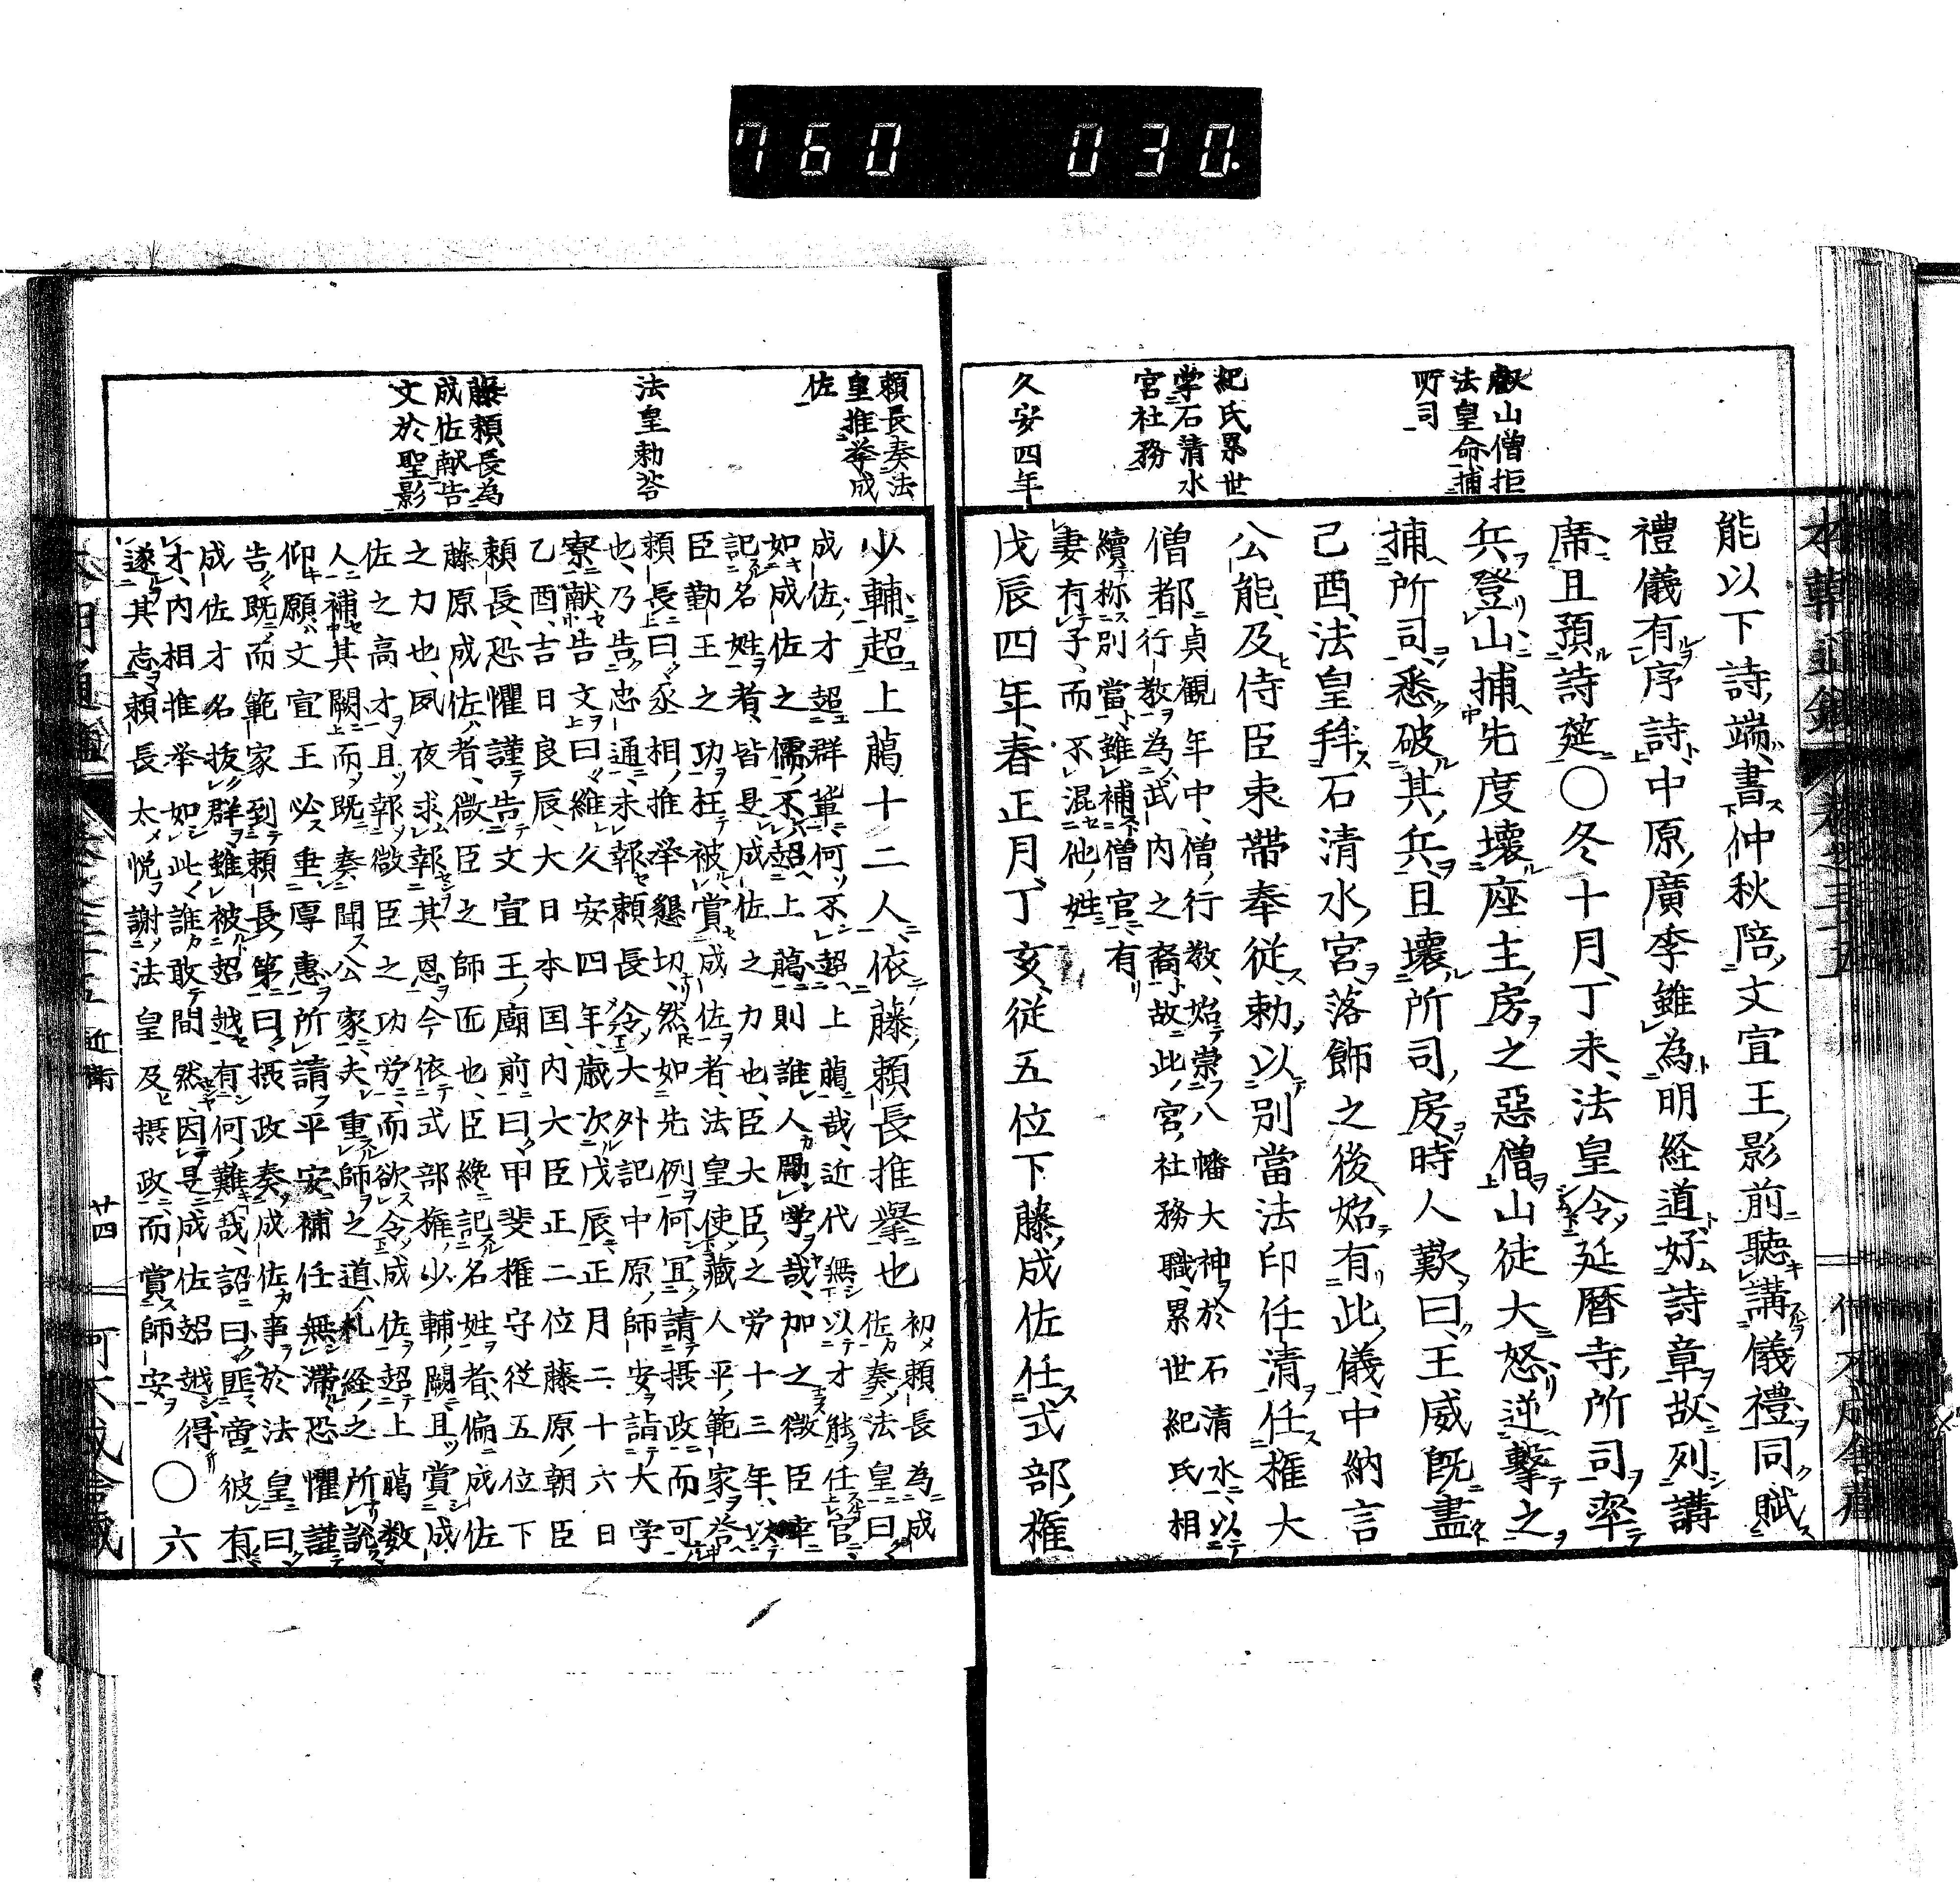 760 030.
叡山僧拒
法皇命捕
所司
紀氏累世
掌石清水
宮社務
久安四年
能以下詩端書仲秋陪文宣王影前聽講儀禮同賦
禮儀有序詩中原廣季雖為明経道好詩章故列講
席且預詩筵〇冬十月丁未法皇令延暦寺所司率
兵登山捕先度壊座主房之惡僧山徒大怒逆擊之
捕所司悉破其兵且壊所司房時人歎曰王威既盡
己酉法皇拜石清水宮落飾之後始有此儀中納言
公能及侍臣束帶奉従勅以別當法印任清任権大
僧都
貞観年中僧行教始崇八幡大神於石清水以
行教為武内之裔故此宮社務職累世紀氏相
續称別當雖補僧官有
妻有子而不混他姓
戊辰四年春正月丁亥従五位下藤成佐任式部権
頼長奏法
皇推挙成
佐
法皇勅答
藤頼長為
成佐献告
文於聖影
少輔超上﨟十二人依藤頼長推擧也
初頼長為成
佐奏法皇曰
成佐才超群輩何不超上﨟哉近代無以才能任官
如成佐之儒不超上﨟則誰人勵学哉加之微臣幸
記名姓者皆是成佐之力也臣大臣之労十三年以
臣勤王之功枉被賞成佐者法皇使藏人平範家答
頼長曰丞相推挙懇切然如先例何宜請摂政而可
也乃告忠通未報頼長令大外記中原師安詣大学
寮献告文曰維久安四年歳次戊辰正月二十六日
乙酉吉日良辰大日本国内大臣正二位藤原朝臣
頼長恐懼謹告文宣王廟前曰甲斐権守従五位下
藤原成佐者微臣之師匠也臣纔記名姓者偏成佐
之力也夙夜求報其恩今依式部権少輔闕且賞成
佐之高才且報微臣之功労而欲令成佐超上﨟数
人補其闕而既奏聞公家夫重師之道札経之所説
仰願文宣王必垂厚惠所請平安補任無滞恐懼謹
告既而範家到頼長第曰摂政奏成佐事於法皇曰
成佐才名抜群雖被超越有何難哉詔曰匪啻彼有
才内相推挙如此誰敢間然因是成佐超越得
遂其志頼長太悦謝法皇及摂政而賞師安
〇六
近衛
廿四